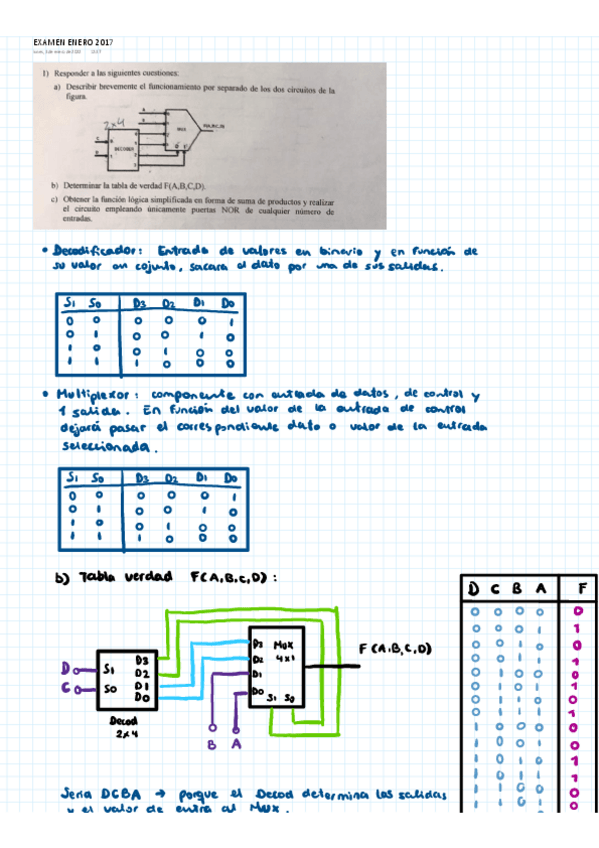 EXAMEN ENERO 2017
1) Responder a las siguientes cuestiones:
a) Describir brevemente el funcionamiento por separado de los dos circuitos de la
figura.
2x4
MUX
DECODER
b) Determinar la tabla de verdad F(A,B,C,D).
c) Obtener la función lógica simplificada en forma de suma de productos y realizar
el circuito empleando únicamente puertas NOR de cualquier número de
entradas.
• Decodificador: Entrada de valores en binario y en función de
su valor en cojunto, sacara el dato por una de sus salidas.
S1 S0 D3 D2 D1 D0
0 0 0 0 0 1
0 1 0 0 1 0
1 0 0 1 0 0
1 1 1 0 0 0
• Multiplexor: componente con entrada de datos, de control y
1 salida. En función del valor de la entrada de control
dejará pasar el correspondiente dato o valor de la entrada
seleccionada.
S1 S0 D3 D2 D1 D0
0 0 0 0 0 1
0 1 0 0 1 0
1 0 0 1 0 0
1 1 1 0 0 0
b) Tabla verdad F(A,B,C,D):
D
C
S1
S0
D3
D2
D1
D0
Decod
2x4
D3
D2
D1
D0
Mux
4x1
S1 S0
B A
F(A,B,C,D)
Seria DCBA → porque el Decod determina las salidas
y el valor de entra al Mux.
D C B A F
0 0 0 0 0
0 0 0 1 1
0 0 1 0 0
0 0 1 1 1
0 1 0 0 0
0 1 0 1 1
0 1 1 0 0
0 1 1 1 1
1 0 0 0 0
1 0 0 1 0
1 0 1 0 1
1 0 1 1 1
1 1 0 0 0
1 1 0 1 0